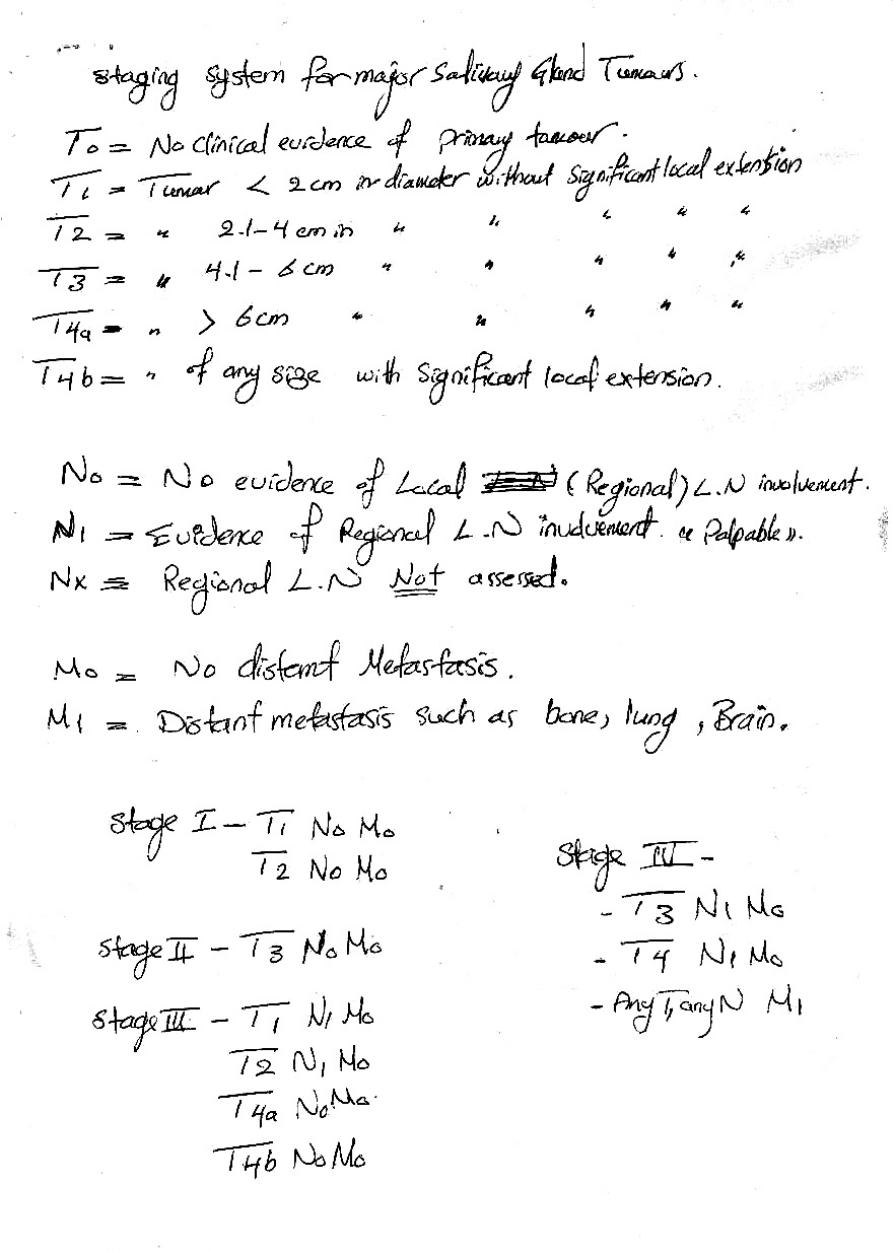 staging system for major Salivary Gland Tumours.
To = No clinical evidence of primary tumour.
T1 = Tumar < 2 cm in diameter without significant local extension
T2 = " 2.1-4 cm in " " " " "
T3 = " 4.1 - 6 cm " " " " "
T4a = " > 6cm " " " " "
T4b = " of any size with significant local extension.
No = No evidence of Local (Regional) L.N involvement.
N1 = Evidence of Regional L.N involvement. « Palpable ».
Nx = Regional L.N Not assessed.
Mo = No distant Metastasis.
M1 = Distant metastasis such as bone, lung, Brain.
Stage I - T1 No Mo
T2 No Mo
Stage II - T3 No Mo
Stage III - T1 N1 Mo
T2 N1 Mo
T4a No Mo.
T4b No Mo
Stage IV -
- T3 N1 Mo
- T4 N1 Mo
- Any T, any N M1